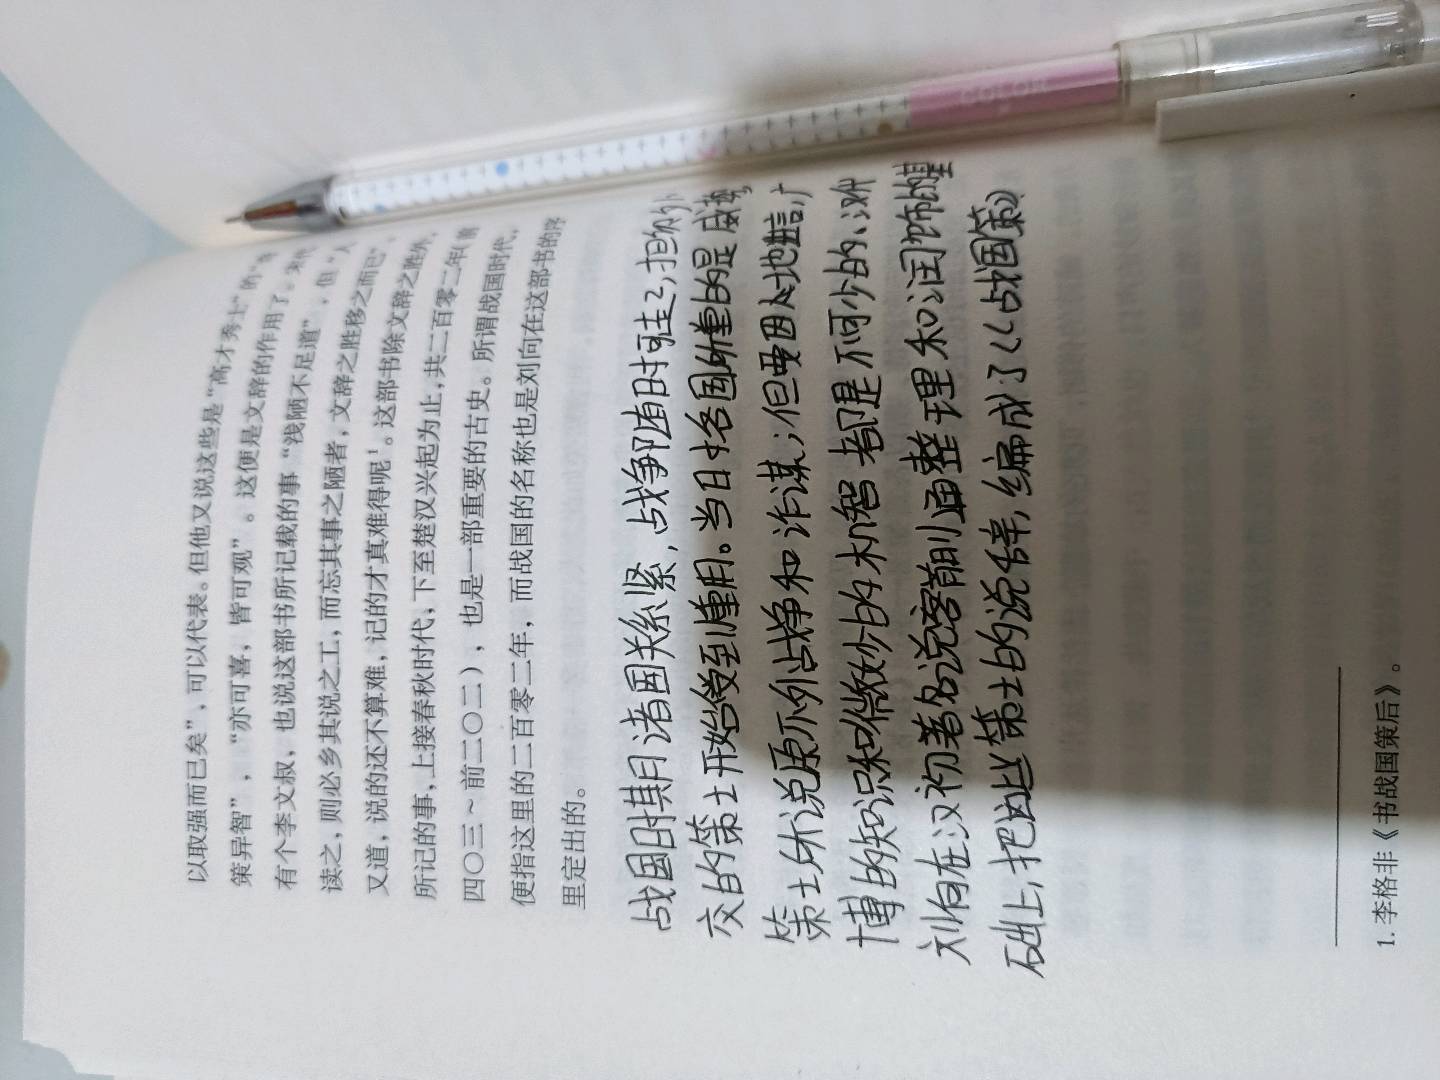 以取强而已矣”，可以代表。但他又说这些是“高才秀士”的“奇
策异智”，“亦可喜，皆可观”。这便是文辞的作用了。宋代
有个李文叔，也说这部书所记载的事“浅陋不足道”，但“人
读之，则必乡其说之工，而忘其事之陋者，文辞之胜移之而已”，
又道，说的还不算难，记的才真难得呢¹。这部书除文辞之胜外，
所记的事，上接春秋时代，下至楚汉兴起为止，共二百零二年（前
四〇三～前二〇二），也是一部重要的古史。所谓战国时代，
便指这里的二百零二年，而战国的名称也是刘向在这部书的序
里定出的。
战国时期诸国关系紧，战争随时可起，担纳外
交的策士开始受到重用。当日各国所重的是威势
策士所说原不外战争和诈谋；但要因人因地进言，广
博的知识和微妙的机智都是不可少的、汉初
刘向在汉初著名说客蒯通整理和润饰的基
础上，把这些策士的说辞，编成了《战国策》
1. 李格非《书战国策后》。
COLOR